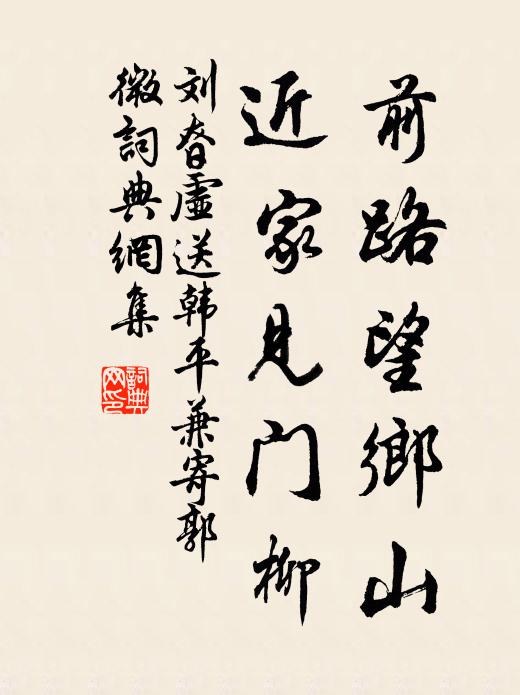 前路望鄉山
近家見门柳
刘眘虛送韩平兼寄郭
微詞典網集
詞典网印